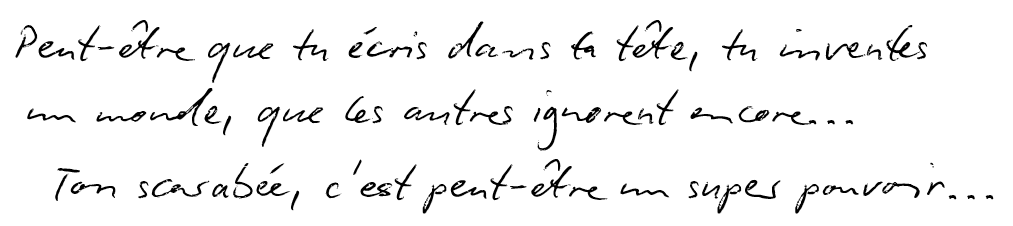 Peut-être que tu écris dans ta tête, tu inventes
un monde, que les autres ignorent encore...
Ton scarabée, c'est peut-être un super pouvoir...